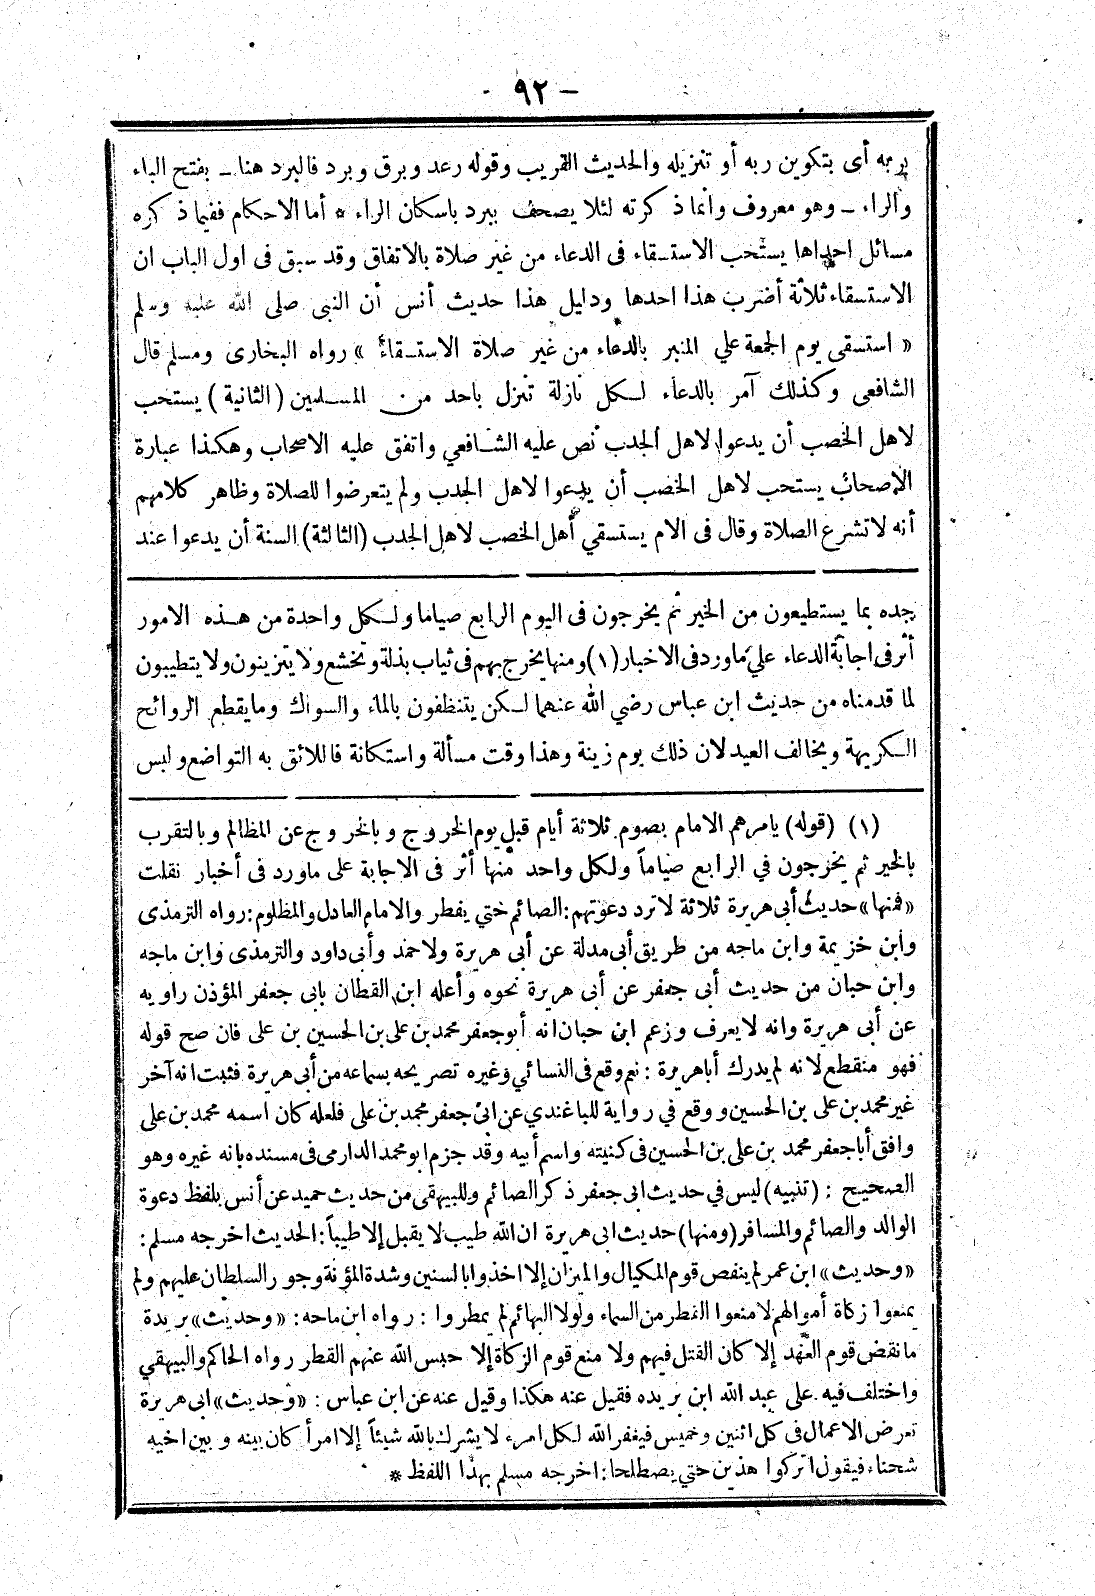 - ٩٢ -
بربه أى بتكوين ربه أو تنزيله والحديث القريب وقوله رعد وبرق وبرد فالبرد هنا ـ بفتح الباء
والراء ـ وهو معروف وانما ذكرته لئلا يصحف ببرد باسكان الراء * أما الاحكام ففيما ذكره
مسائل احداها يستحب الاستسقاء فى الدعاء من غير صلاة بالاتفاق وقد سبق فى اول الباب ان
الاستسقاء ثلاثة أضرب هذا احدها ودليل هذا حديث أنس أن النبى صلى الله عليه وسلم
« استسقى يوم الجمعة علي المنبر بالدعاء من غير صلاة الاستسقاء » رواه البخارى ومسلم قال
الشافعى وكذلك آمر بالدعاء لكل نازلة تنزل باحد من المسلمين (الثانية) يستحب
لاهل الخصب أن يدعوا لاهل الجدب نص عليه الشافعي واتفق عليه الاصحاب وهكذا عبارة
الاصحاب يستحب لاهل الخصب أن يدعوا لاهل الجدب ولم يتعرضوا للصلاة وظاهر كلامهم
أنه لا تشرع الصلاة وقال فى الام يستسقي أهل الخصب لاهل الجدب (الثالثة) السنة أن يدعوا عند
جده بما يستطيعون من الخير ثم يخرجون فى اليوم الرابع صياما ولكل واحدة من هذه الامور
أثر فى اجابة الدعاء علي ماورد فى الاخبار (١) ومنها يخرج بهم فى ثياب بذلة وتخشع ولا يتزينون ولا يتطيبون
لما قدمناه من حديث ابن عباس رضي الله عنهما لكن يتنظفون بالماء والسواك ومايقطع الروائح
الكريهة ويخالف العيد لان ذلك يوم زينة وهذا وقت مسألة واستكانة فاللائق به التواضع ولبس
(١) (قوله) يامرهم الامام بصوم ثلاثة أيام قبل يوم الخروج وبالخروج عن المظالم وبالتقرب
بالخير ثم يخرجون في الرابع صياماً ولكل واحد منها أثر فى الاجابة على ماورد فى أخبار نقلت
«فمنها» حديث أبي هريرة ثلاثة لاترد دعوتهم: الصائم حتي يفطر والامام العادل والمظلوم: رواه الترمذى
وابن خزيمة وابن ماجه من طريق أبى مدلة عن أبي هريرة ولاحمد وأبى داود والترمذى وابن ماجه
وابن حبان من حديث أبى جعفر عن أبى هريرة نحوه وأعله ابن القطان بابى جعفر المؤذن راويه
عن أبى هريرة وانه لايعرف وزعم ابن حبان انه أبو جعفر محمد بن على بن الحسين بن على فان صح قوله
فهو منقطع لانه لم يدرك أباهريرة : نعم وقع فى النسائي وغيره تصريحه بسماعه من أبى هريرة فثبت انه آخر
غير محمد بن على بن الحسين ووقع في رواية للباغندي عن ابى جعفر محمد بن على فلعله كان اسمه محمد بن على
وافق أبا جعفر محمد بن على بن الحسين فى كنيته واسم أبيه وقد جزم ابو محمد الدارمى فى مسنده بانه غيره وهو
الصحيح : (تنبيه) ليس في حديث ابى جعفر ذكر الصائم وللبيهقى من حديث حميد عن أنس بلفظ دعوة
الوالد والصائم والمسافر (ومنها) حديث ابى هريرة ان الله طيب لا يقبل إلا طيباً: الحديث اخرجه مسلم:
«وحديث» ابن عمر لم ينقص قوم المكيال والميزان إلا اخذوا بالسنين وشدة المؤنة وجور السلطان عليهم ولم
يمنعوا زكاة أموالهم لا منعوا القطر من السماء ولولا البهائم لم يمطروا : رواه ابن ماجه: «وحديث» بريدة
مانقض قوم العهد إلا كان القتل فيهم ولا منع قوم الزكاة إلا حبس الله عنهم القطر رواه الحاكم والبيهقي
واختلف فيه على عبد الله ابن بريده فقيل عنه هكذا وقيل عنه عن ابن عباس : «وحديث» ابى هريرة
تعرض الاعمال فى كل اثنين وخميس فيغفر الله لكل امرء لا يشرك بالله شيئاً إلا امرأ كان بينه وبين اخيه
شحناء فيقول اتركوا هذين حتي يصطلحا: اخرجه مسلم بهذا اللفظ *